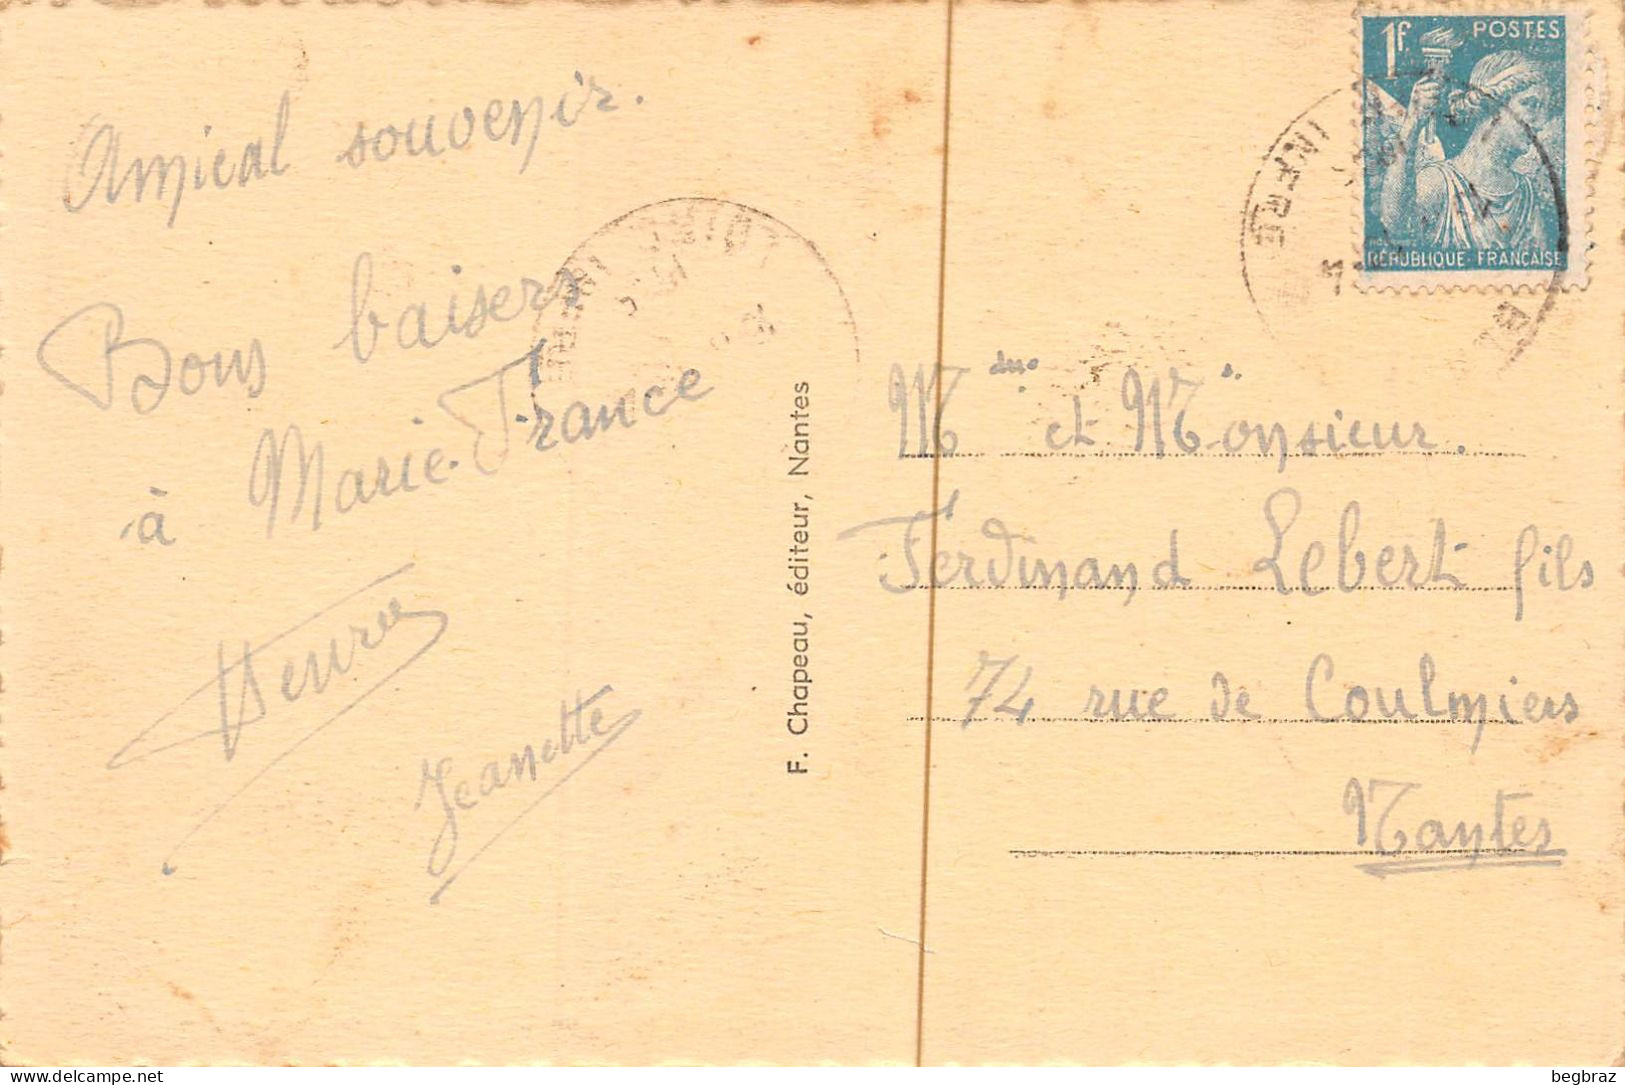 Amical souvenir.
Bons baisers
à Marie-France
Jeanette
F. Chapeau, éditeur, Nantes
1f POSTES
RÉPUBLIQUE FRANÇAISE
INFRE
LOIRE
Mme et Monsieur.
Ferdinand Lebert fils
74 rue de Coulmiers
Nantes
begbraz